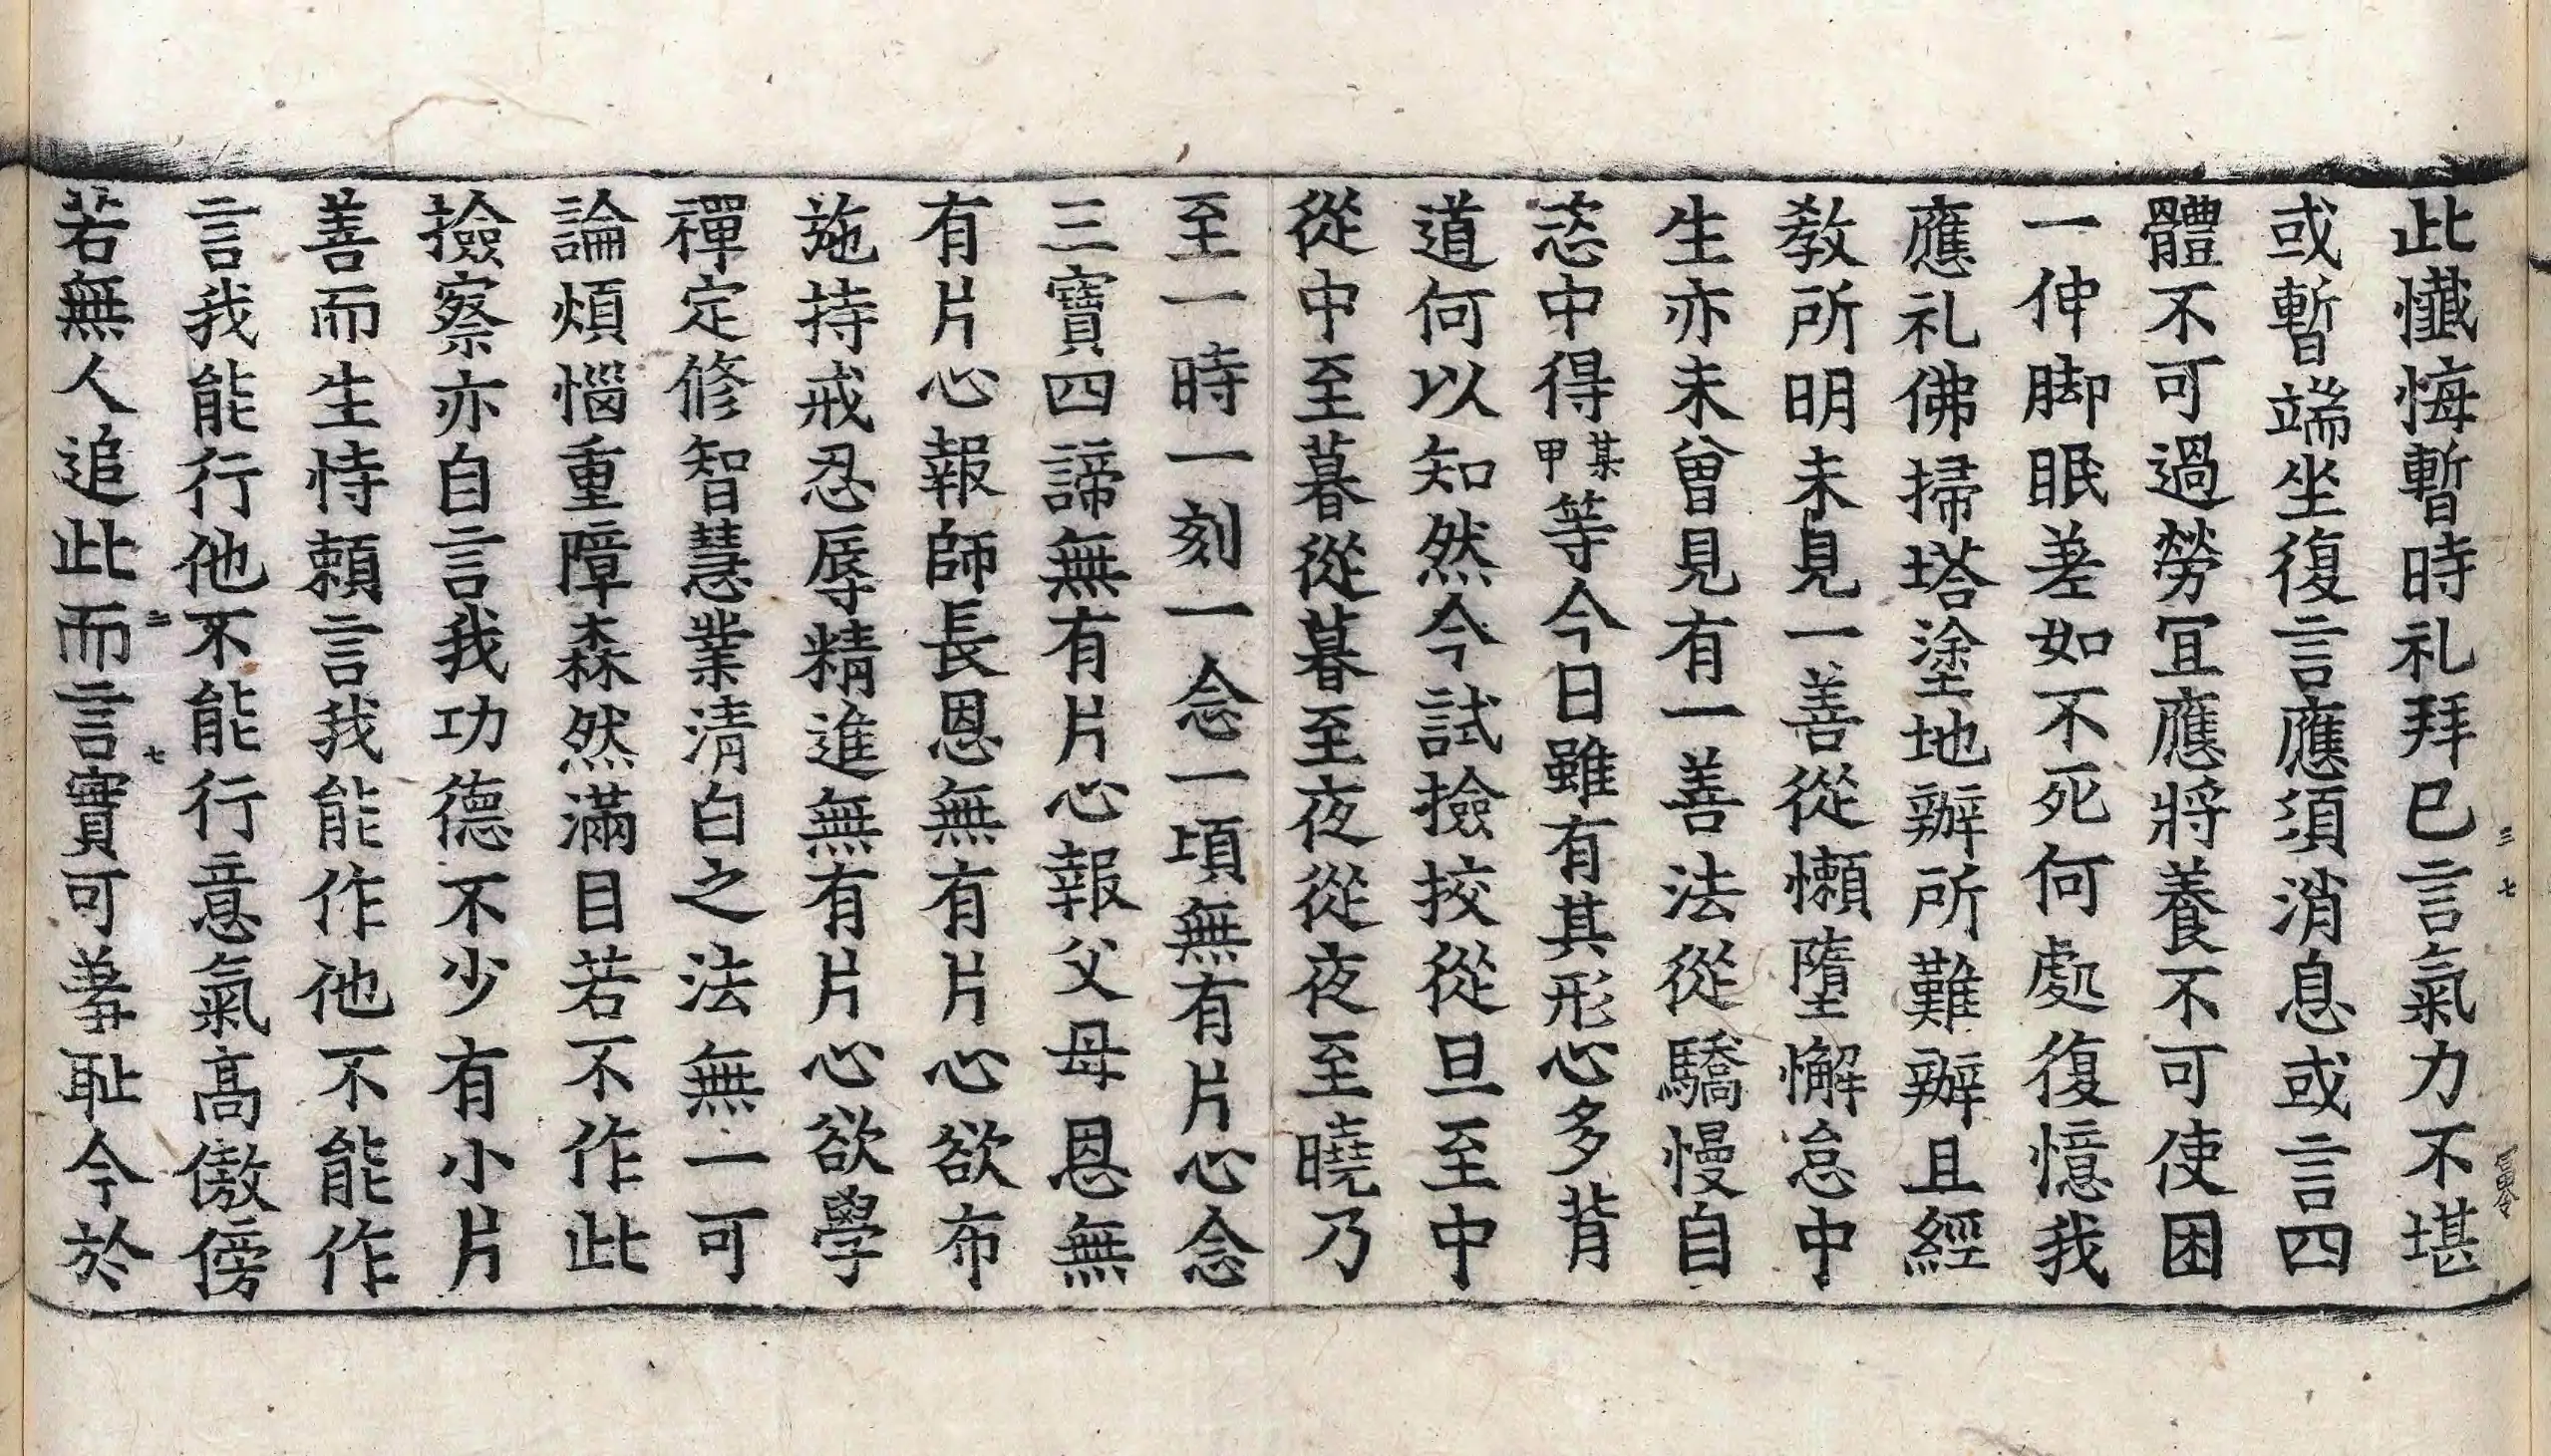 此懺悔暫時礼拜已言氣力不堪
或暫端坐復言應須消息或言四
體不可過勞宜應將養不可使困
一伸脚眠差如不死何處復憶我
應礼佛掃塔塗地辦所難辦且經
教所明未見一善從懶墮懈怠中
生亦未曾見有一善法從驕慢自
恣中得某甲等今日雖有其形心多背
道何以知然今試撿挍從旦至中
從中至暮從暮至夜從夜至曉乃
至一時一刻一念一頃無有片心念
三寶四諦無有片心報父母恩無
有片心報師長恩無有片心欲布
施持戒忍辱精進無有片心欲學
禪定修智慧業清白之法無一可
論煩惱重障森然滿目若不作此
撿察亦自言我功德不少有小片
善而生恃賴言我能作他不能作
言我能行他不能行意氣高傲傍
若無人追此而言實可羞恥今於
三 七
三 七